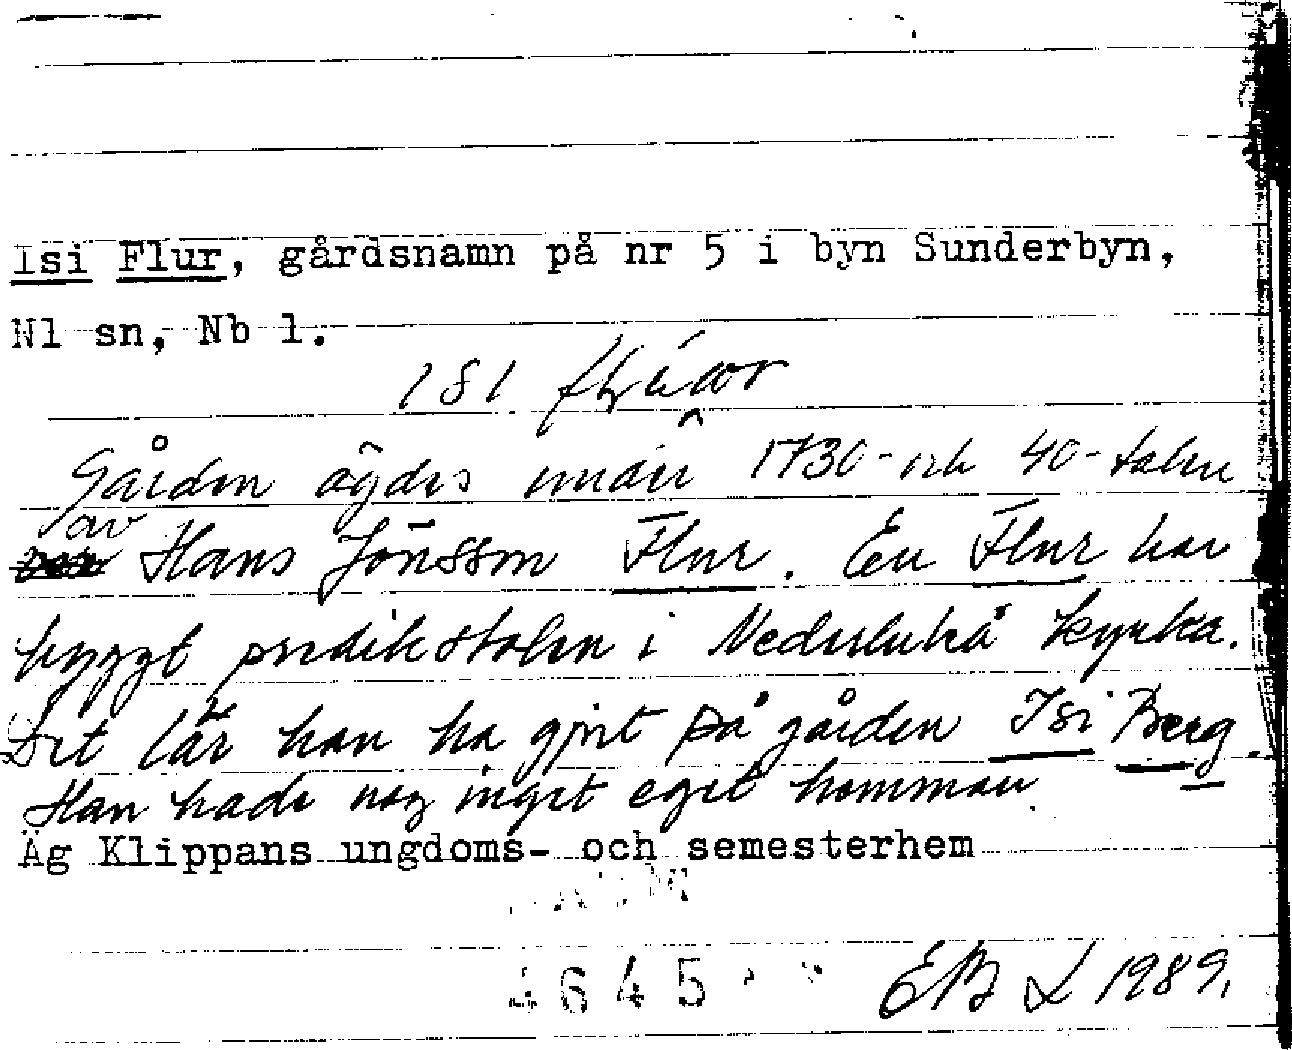 Isi Flur, gårdsnamn på nr 5 i byn Sunderbyn,
Nl sn, Nb l.
ISI
Gården ägdes under 1730- och 40-talen
av
Hans Jönsson Flur. En Flur har
byggt predikstolen i Nederluleå kyrka.
Det lär han ha gjort på gården Isi Berg.
Han hade nog inget eget hemman.
Äg Klippans ungdoms- och semesterhem
4645
EB L 1989.